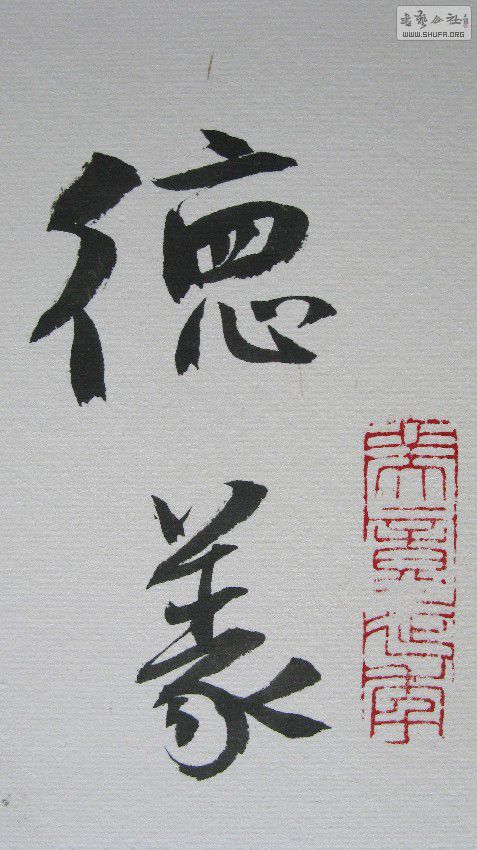 書藝公社
WWW.SHUFA.ORG
德
義